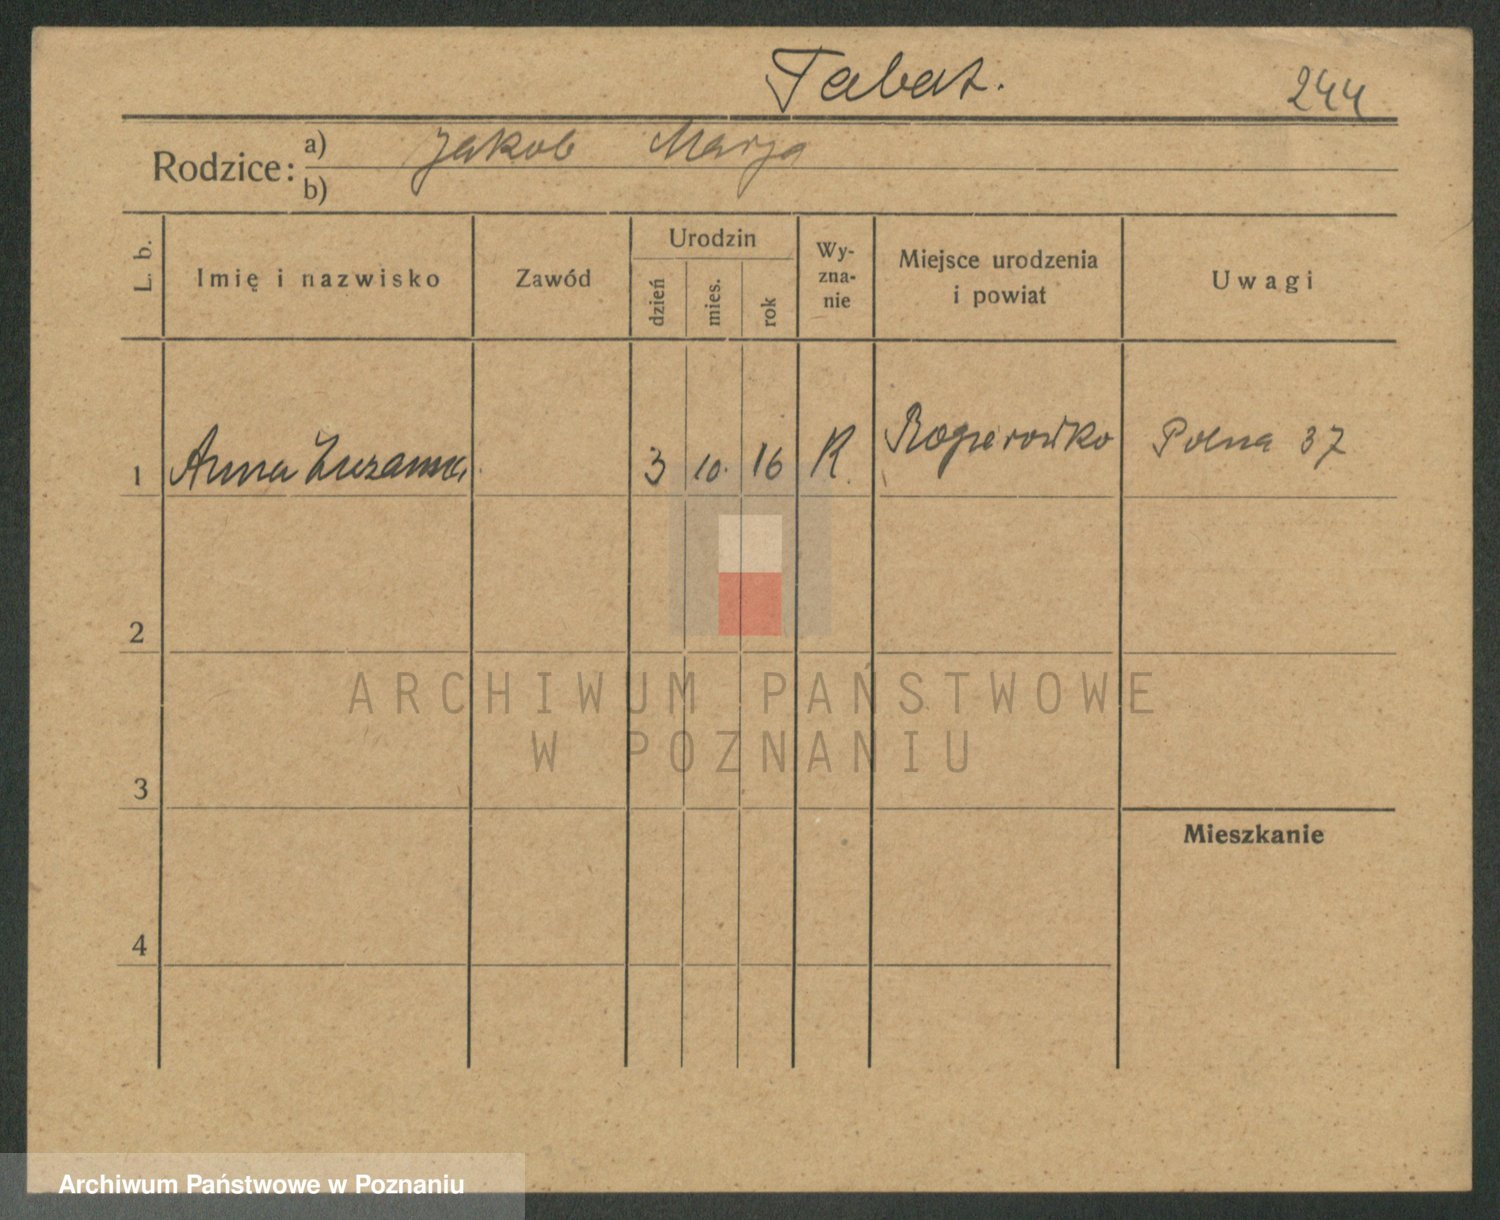 Tabat. 244
Rodzice: a) Jakob Marya
b)
L. b. Imię i nazwisko Zawód Urodzin dzień mies. rok Wy-zna-nie Miejsce urodzenia i powiat Uwagi
1 Anna Zuzanna 3 10. 16 R. Rogierowko Polna 37
2
ARCHIWUM PAŃSTWOWE
W POZNANIU
3
Mieszkanie
4
Archiwum Państwowe w Poznaniu